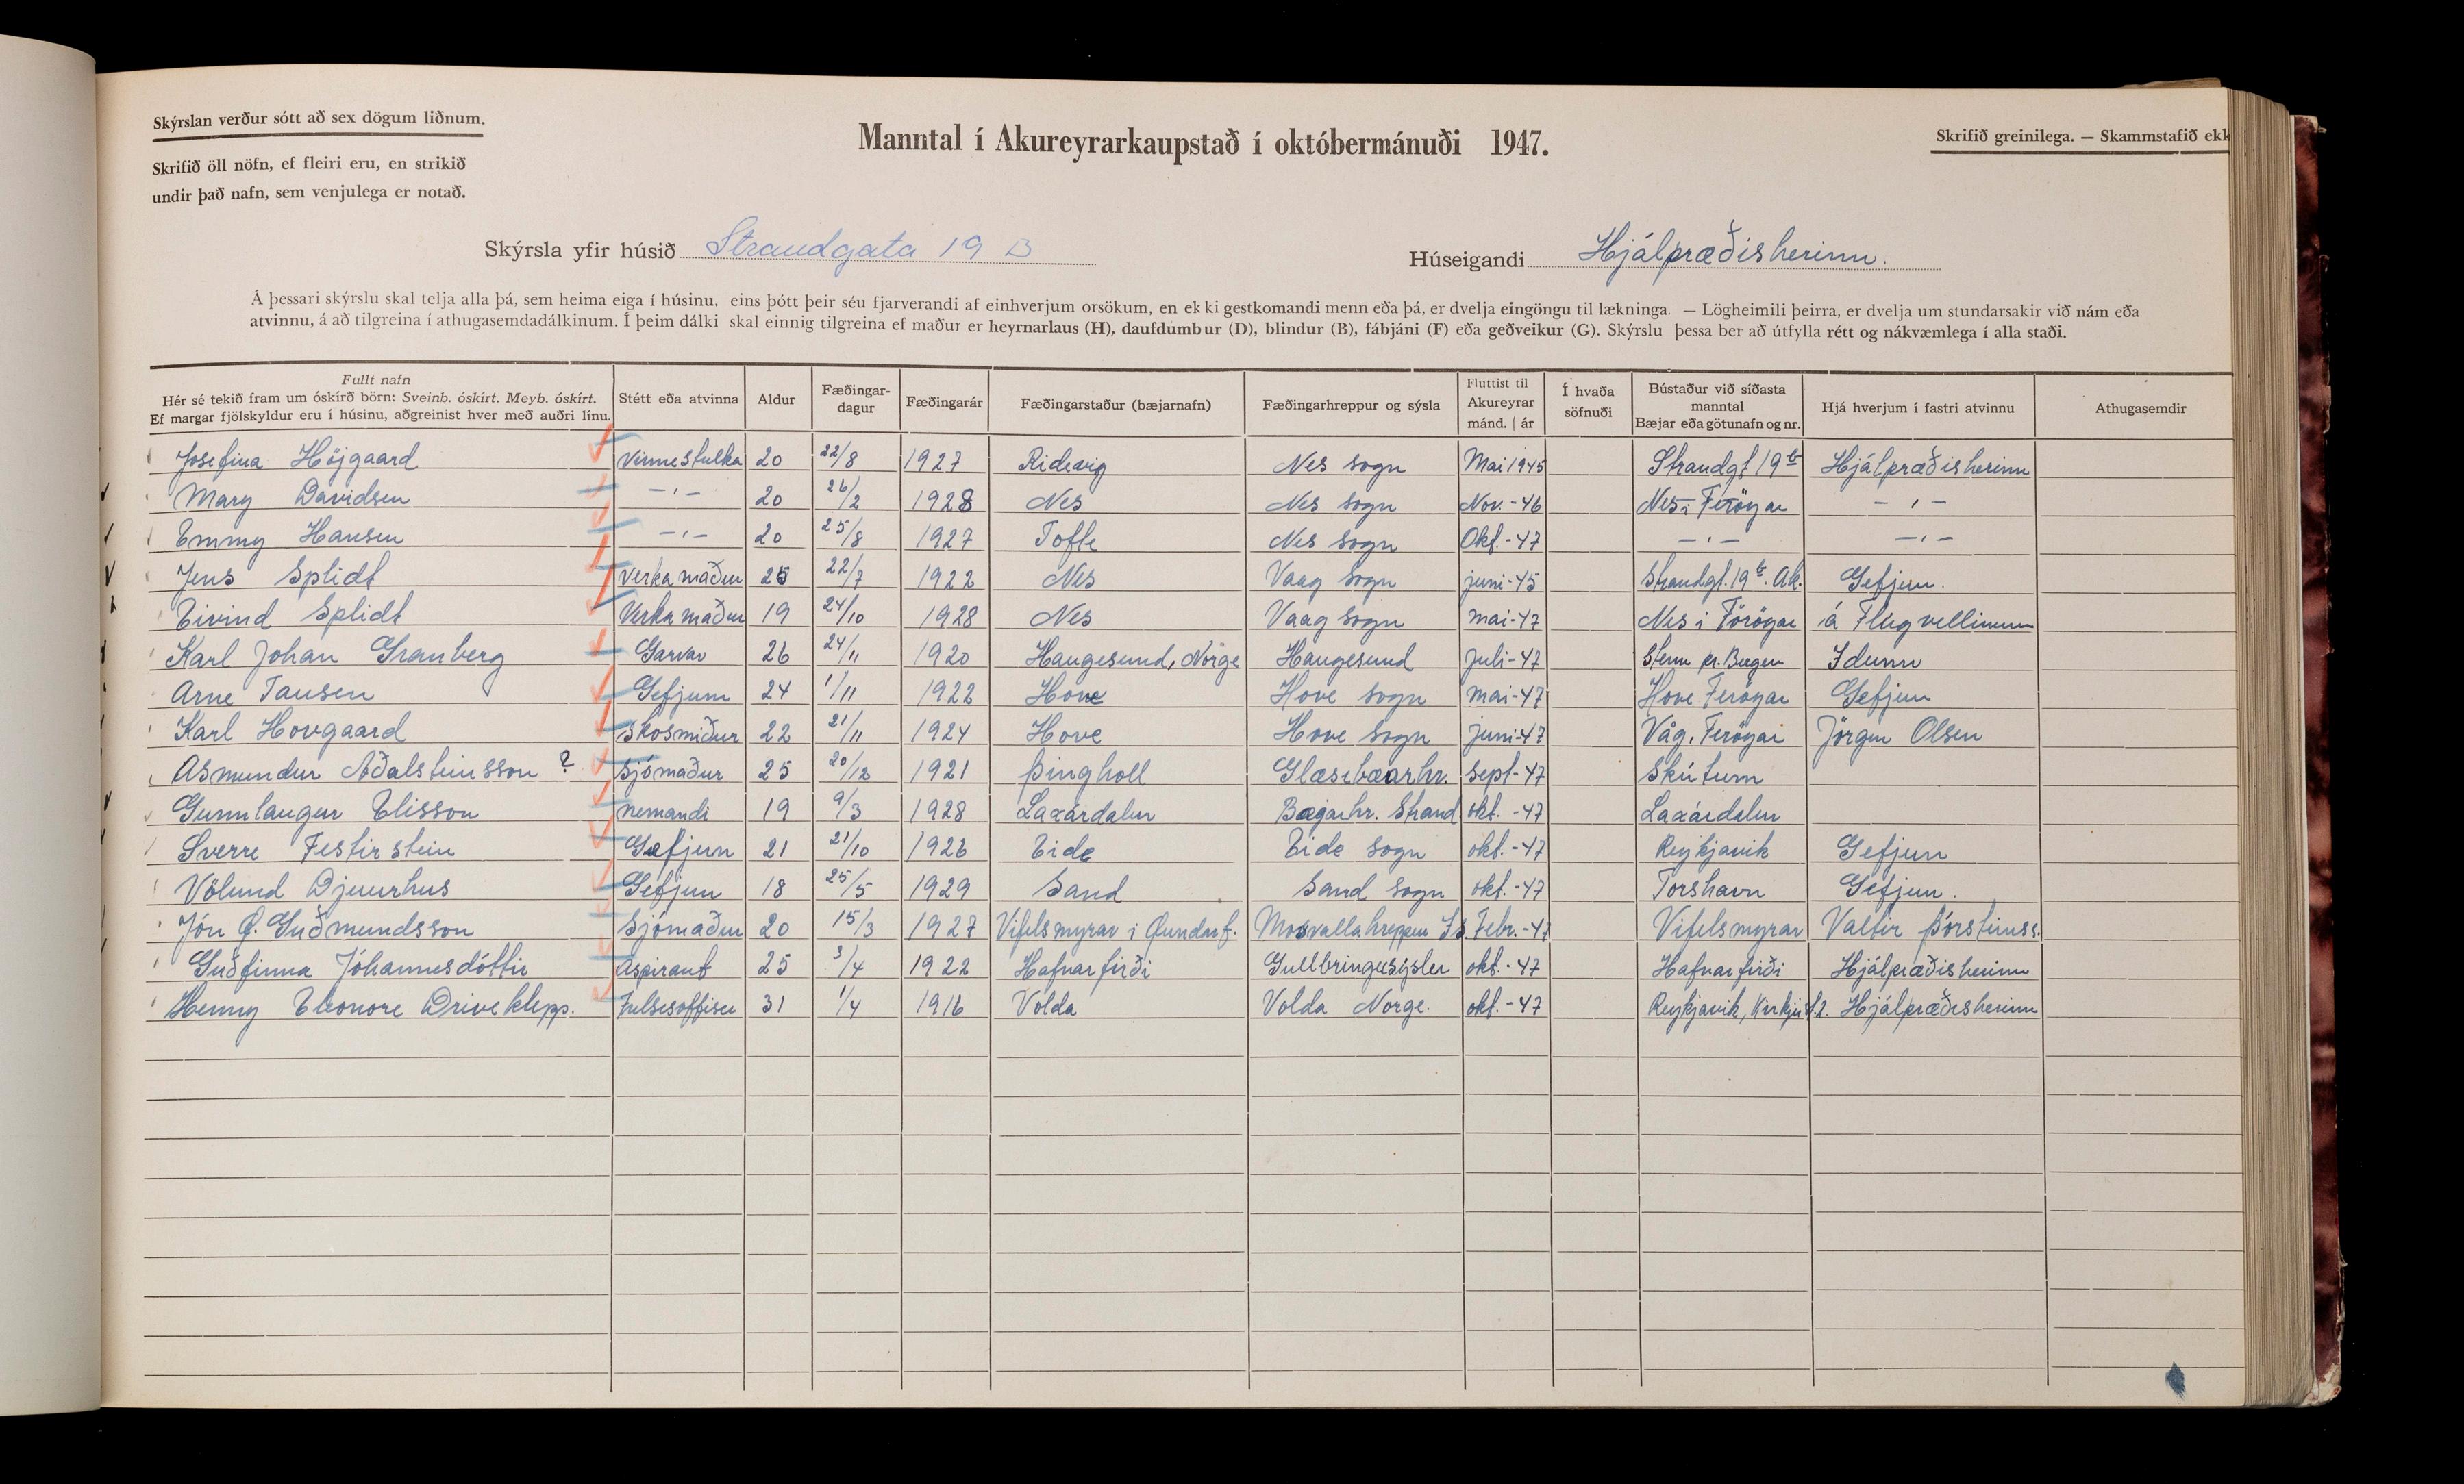 Skýrslan verður sótt að sex dögum liðnum.
Skrifið öll nöfn, ef fleiri eru, en strikið
undir það nafn, sem venjulega er notað.
Manntal í Akureyrarkaupstað í októbermánuði 1947.
Skrifið greinilega. — Skammstafið ekk
Skýrsla yfir húsið Strandgata 19 B
Húseigandi Hjálpræðisherinn.
Á þessari skýrslu skal telja alla þá, sem heima eiga í húsinu, eins þótt þeir séu fjarverandi af einhverjum orsökum, en ekki gestkomandi menn eða þá, er dvelja eingöngu til lækninga. — Lögheimili þeirra, er dvelja um stundarsakir við nám eða
atvinnu, á að tilgreina í athugasemdadálkinum. Í þeim dálki skal einnig tilgreina ef maður er heyrnarlaus (H), daufdumbur (D), blindur (B), fábjáni (F) eða geðveikur (G). Skýrslu þessa ber að útfylla rétt og nákvæmlega í alla staði.
Fullt nafn
Hér sé tekið fram um óskírð börn: Sveinb. óskírt. Meyb. óskírt.
Ef margar fjölskyldur eru í húsinu, aðgreinist hver með auðri línu.
Stétt eða atvinna
Aldur
Fæðingar-
dagur
Fæðingarár
Fæðingarstaður (bæjarnafn)
Fæðingarhreppur og sýsla
Fluttist til
Akureyrar
mánd. | ár
Í hvaða
söfnuði
Bústaður við síðasta
manntal
Bæjar eða götunafn og nr.
Hjá hverjum í fastri atvinnu
Athugasemdir
Josefina Höjgaard Vinnestulka 20 22/8 1927 Ridevig Nes sogn Mai 1945 Strandgt 19 b Hjálpræðisherinn
Mary Davidsen — " — 20 26/2 1928 Nes Nes sogn Nov. - 46 Nes i Feröyar — " —
Emmy Hansen — " — 20 25/8 1927 Tofte Nes sogn Okt. - 47 — " — — " —
Jens Splidt Verkamaður 25 22/7 1922 Nes Vaag sogn juni - 45 Strandgt. 19 b. Ak. Gefjun.
Eivind Splidt Verkamaður 19 24/10 1928 Nes Vaag sogn mai - 47 Nes i Föröyar á Flugvellinum
Karl Johan Granberg Garvar 26 24/11 1920 Haugesund, Norge Haugesund Juli - 47 Stenn pr. Bergen Idunn
Arne Tausen Gefjum 24 1/11 1922 Hove Hove sogn mai - 47 Hove Feröyar Gefjun
Karl Hovgaard Skosmiður 22 21/11 1924 Hove Hove sogn juni - 47 Våg, Feröyar Jörgen Olsen
Asmundur Aðalsteinsson ? Sjómaður 25 20/12 1921 Þingholl Glæsebæarhr. Sept - 47 Skútum
Gunnlaugur Elisson nemandi 19 9/3 1928 Laxárdalur Bæjarhr. Strand. okt. - 47 Laxárdalur
Sverre Festirstein Gefjun 21 21/10 1926 Eide Eide sogn okt. - 47 Reykjavik Gefjun
Völund Djuurhus Gefjun 18 25/5 1929 Sand Sand sogn okt. - 47 Torshavn Gefjun.
Jón Q. Guðmundsson Sjómaður 20 15/3 1927 Vifilsmyrar i Qundarf. Mosvallahreppur Ís. Febr. - 47 Vifilsmyrar Valtir Þórsteinss.
Guðfinna Jóhannesdóttir Aspirant 25 3/4 1922 Hafnarfirði Gullbringusýslu okt. - 47 Hafnarfirði Hjálpræðisherinn
Henny Eleonore Driveklepp. frelsesoffiser 31 1/4 1916 Volda Volda Norge. okt. - 47 Reykjavik, Kirkjust. 2. Hjálpræðisherinn